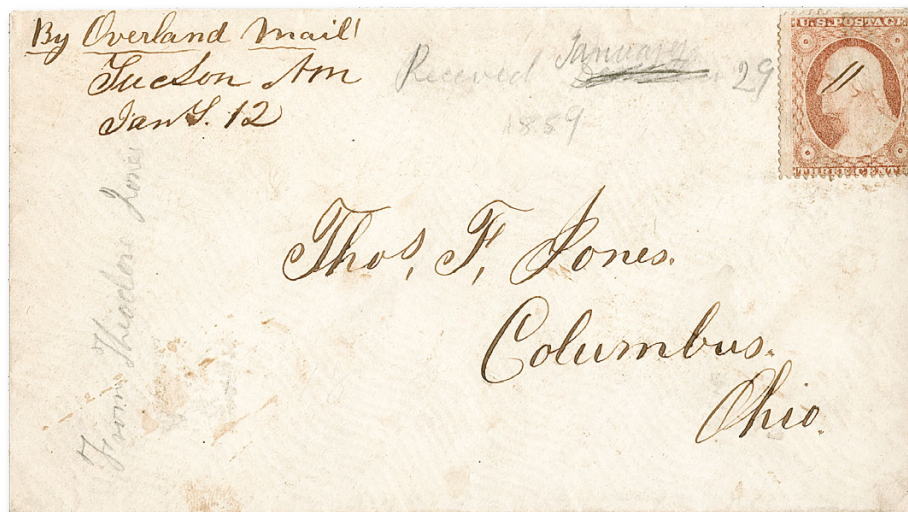 By Overland Mail
Tucson Am
Jany. 12
Received January 29
1859
U.S. POSTAGE
THREE CENTS
From Theodore Jones
Thos. F. Jones.
Columbus.
Ohio.